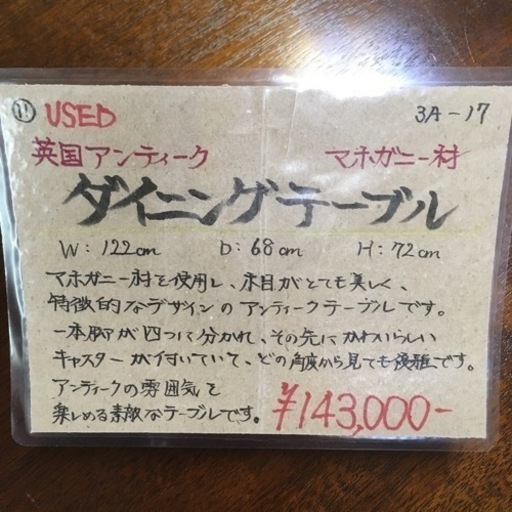 ⑪ USED 3A-17
英国アンティーク マホガニー材
ダイニングテーブル
W:122cm D:68cm H:72cm
マホガニー材を使用し、木目がとても美しく、
特徴的なデザインのアンティークテーブルです。
一本脚が四つに分かれ、その先にかわいらしい
キャスターが付いていて、どの角度から見ても優雅です。
アンティークの雰囲気を
楽しめる素敵なテーブルです。
¥143,000-